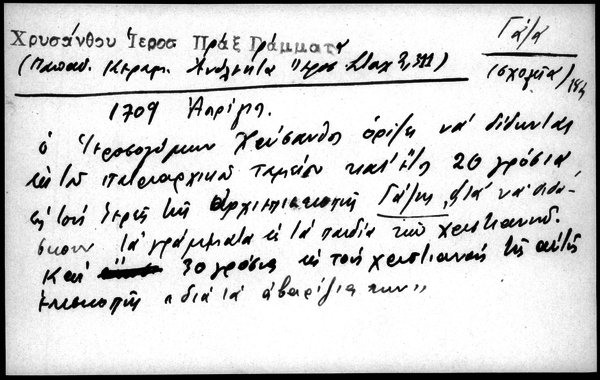 Χρυσάνθου Ἱεροσ Πράξ Γράμματα
Γάζα
(Παπαδ. Κεραμ. Ἀνάλεκτα Ἱεροσ. Σταχ 3,311)
(σχολεῖα)
1709 Ἀπρίλη.
ὁ Ἱεροσολύμων Χρύσανθος ὁρίζει νά δίδωνται
ἐκ τοῦ πατριαρχικοῦ ταμείου κατ' ἔτος 20 γρόσια
εἰς τούς ἱερεῖς τῆς ἀρχιεπισκοπῆς Γάζης, διά νά διδά-
σκουν τά γράμματα εἰς τά παιδία τῶν χριστιανῶν.
Καί 30 γρόσια εἰς τούς χριστιανούς τῆς αὐτῆς
ἐπισκοπῆς "διά τά ἀβαρίζια των"